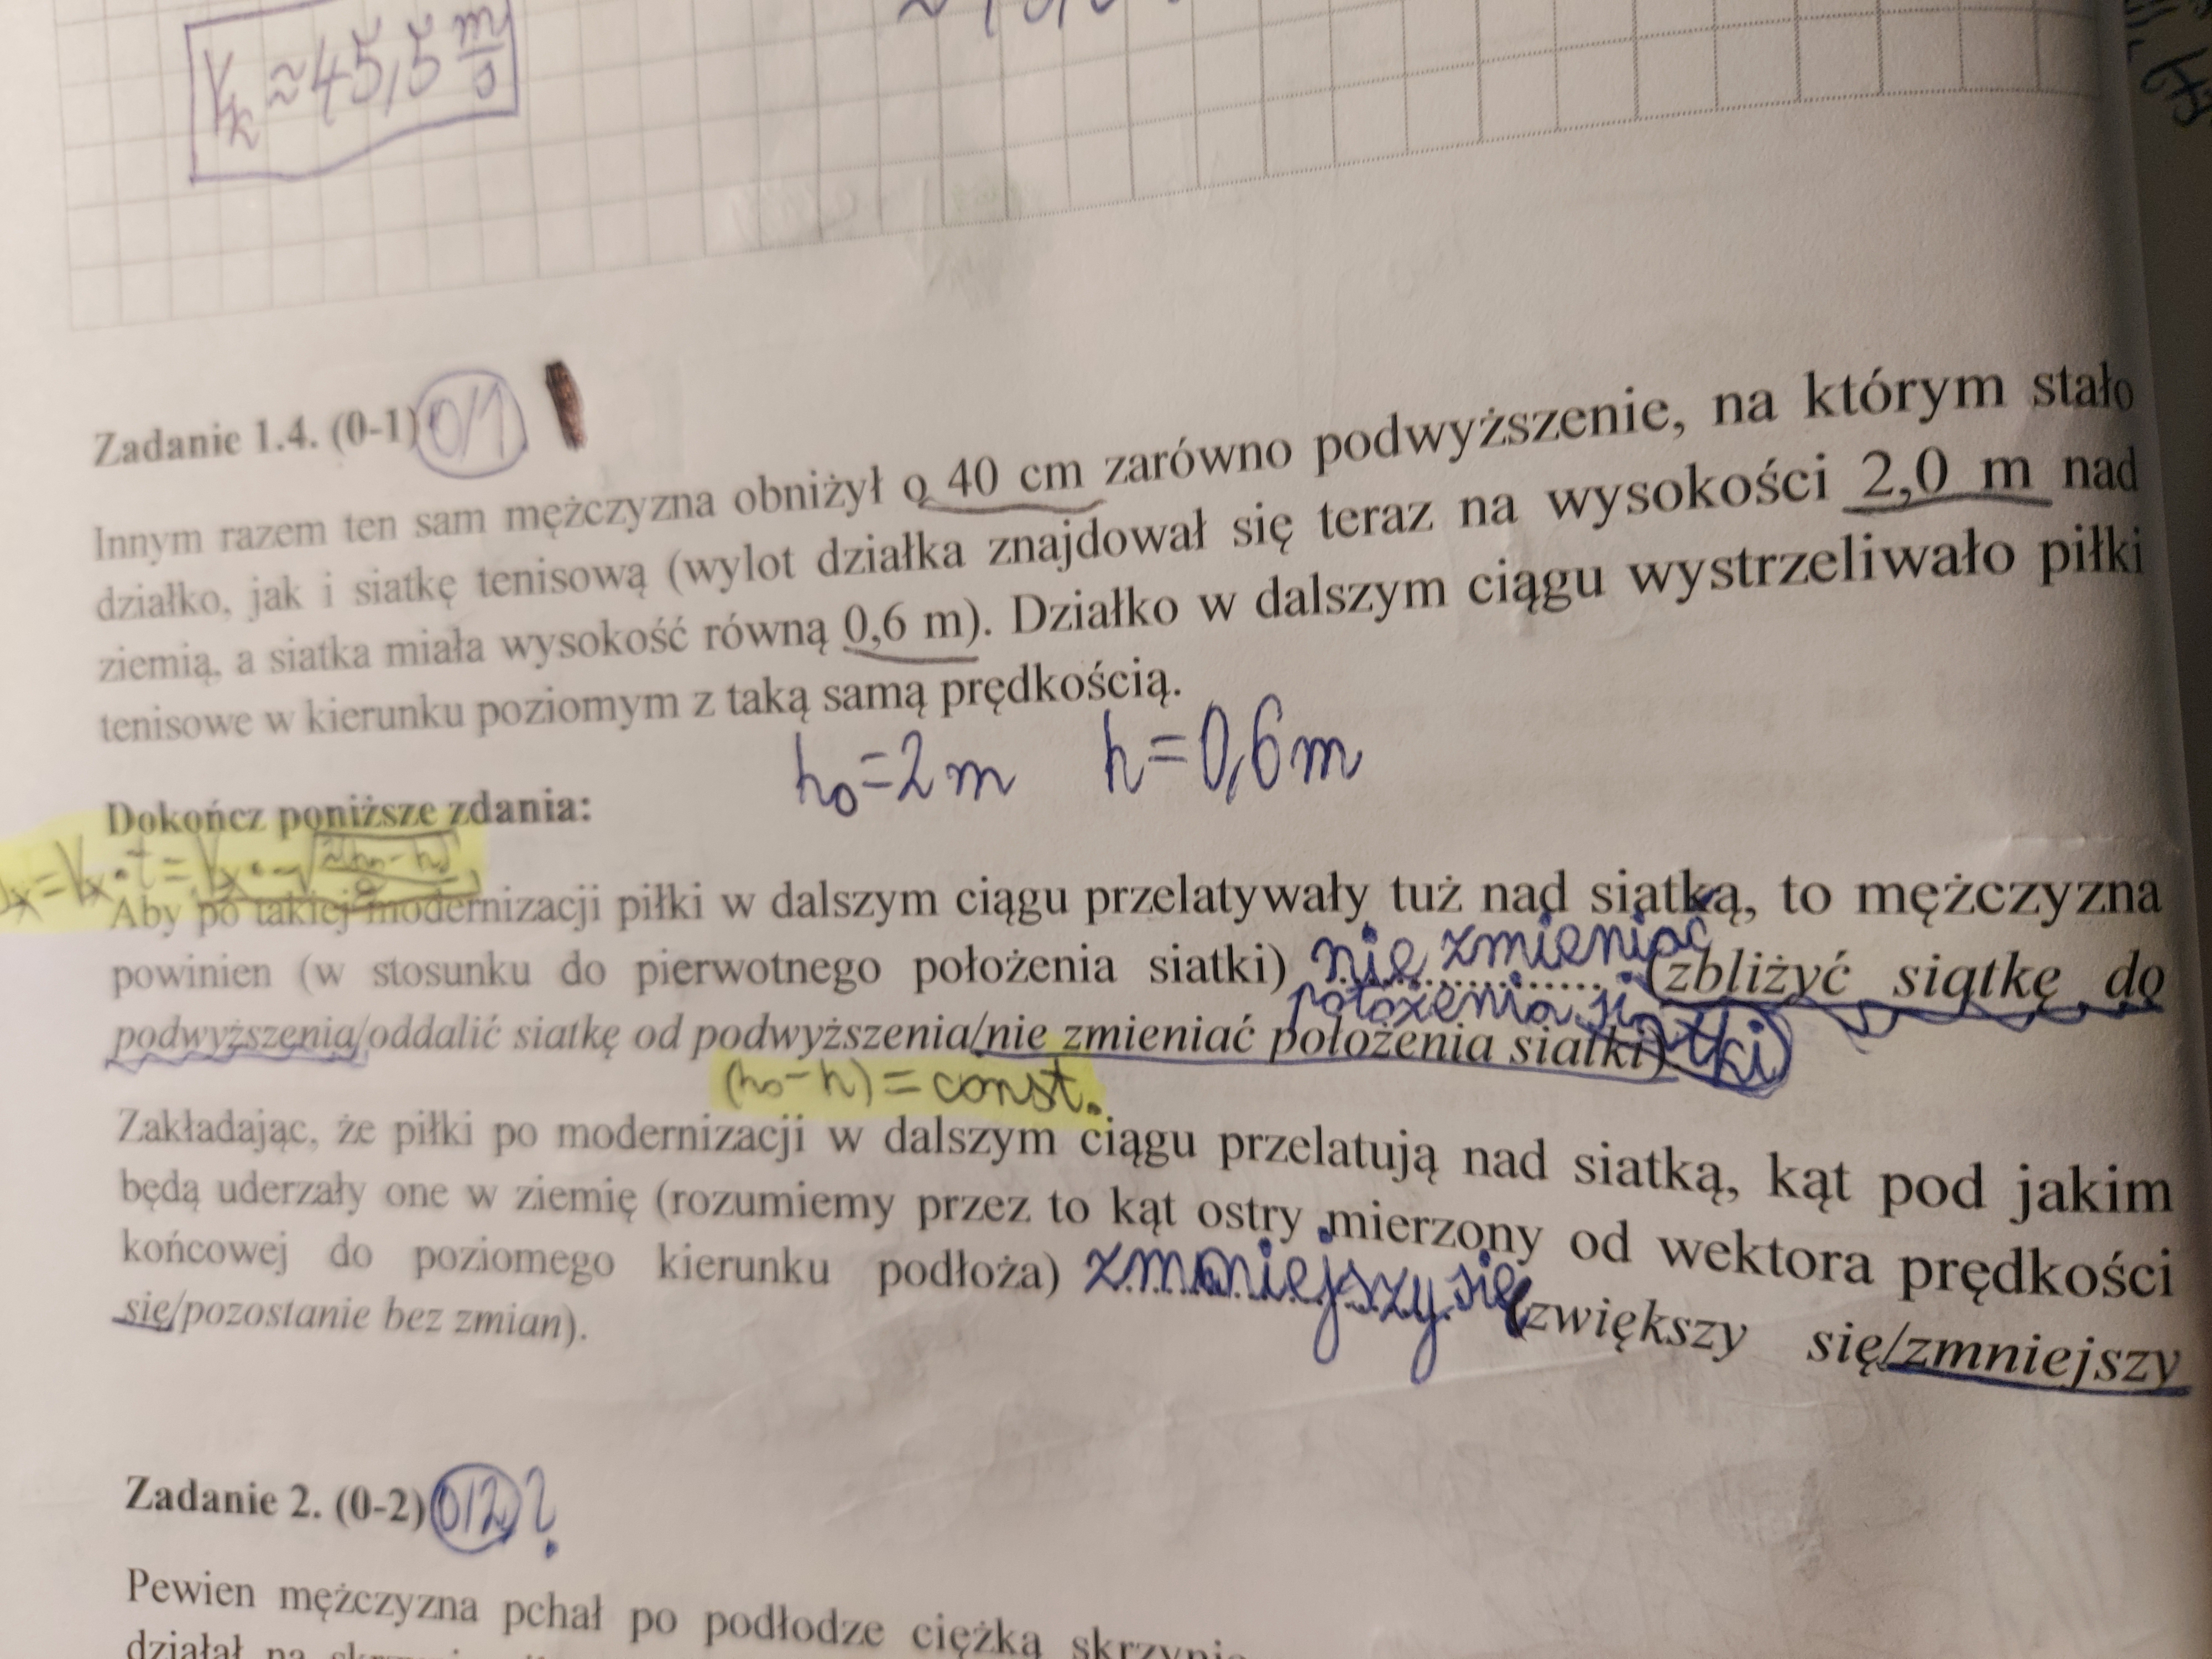 Vk ≈ 45,5 m/s
Zadanie 1.4. (0-1) 0/1
Innym razem ten sam mężczyzna obniżył o 40 cm zarówno podwyższenie, na którym stało
działko, jak i siatkę tenisową (wylot działka znajdował się teraz na wysokości 2,0 m nad
ziemią, a siatka miała wysokość równą 0,6 m). Działko w dalszym ciągu wystrzeliwało piłki
tenisowe w kierunku poziomym z taką samą prędkością.
h₀=2m h=0,6m
Dokończ poniższe zdania:
Aby po takiej modernizacji piłki w dalszym ciągu przelatywały tuż nad siatką, to mężczyzna
powinien (w stosunku do pierwotnego położenia siatki) nie zmieniać położenia siatki (zbliżyć siatkę do
podwyższenia/oddalić siatkę od podwyższenia/nie zmieniać położenia siatki).
(h₀-h)=const.
Zakładając, że piłki po modernizacji w dalszym ciągu przelatują nad siatką, kąt pod jakim
będą uderzały one w ziemię (rozumiemy przez to kąt ostry mierzony od wektora prędkości
końcowej do poziomego kierunku podłoża) zmniejszy się (zwiększy się/zmniejszy
się/pozostanie bez zmian).
Zadanie 2. (0-2) 0/2 ?
Pewien mężczyzna pchał po podłodze ciężką
działał na